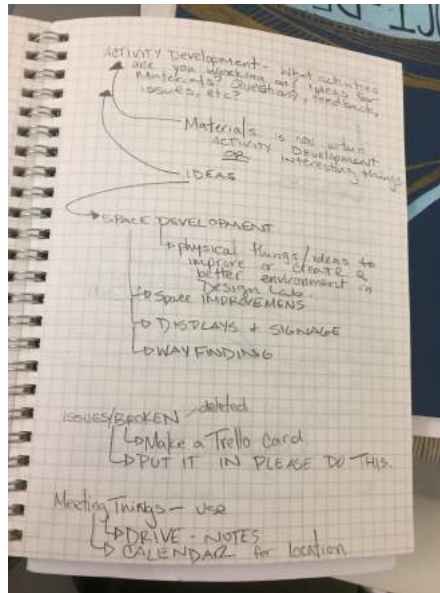 ACTIVITY Development - What activities
are you working, any ideas for
Materials? Questions, feedback,
issues, etc?
Materials is now within
ACTIVITY Development
OR interesting things
IDEAS
SPACE DEVELOPMENT
physical things/ideas to
improve or create a
better environment in
Design Lab.
Space IMPROVEMENS
DISPLAYS + SIGNAGE
WAYFINDING
ISSUES/BROKEN - deleted
Make a Trello Card
PUT IT IN PLEASE DO THIS.
Meeting Things - use
DRIVE - NOTES
CALENDAR for location